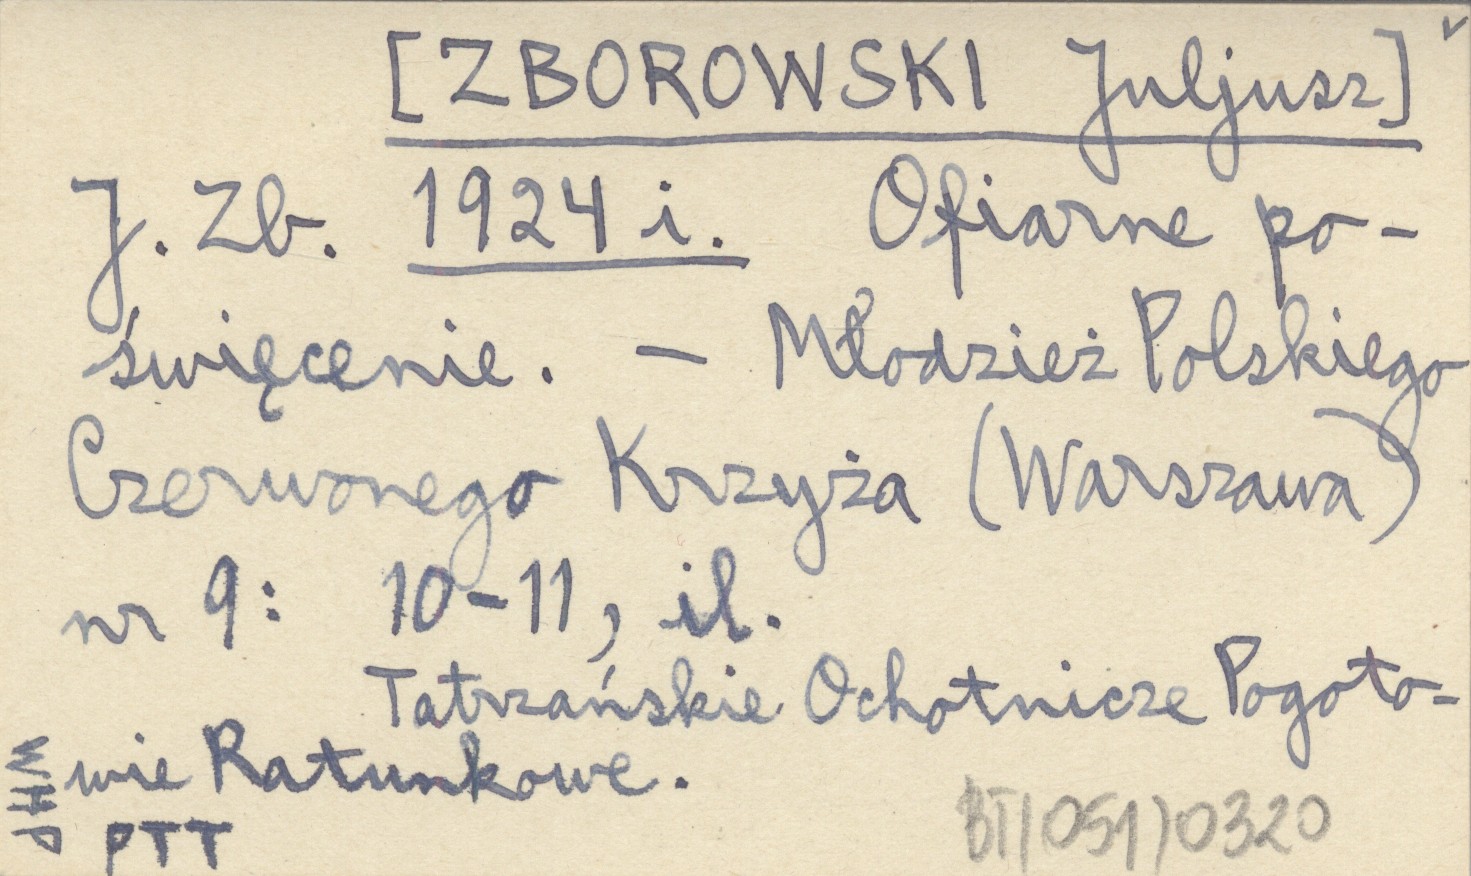 [ZBOROWSKI Juljusz]
J. Zb. 1924 i. Ofiarne po-
święcenie. — Młodzież Polskiego
Czerwonego Krzyża (Warszawa)
nr 9: 10-11, il.
Tatrzańskie Ochotnicze Pogoto-
wie Ratunkowe.
WHP
PTT
BT/051/0320